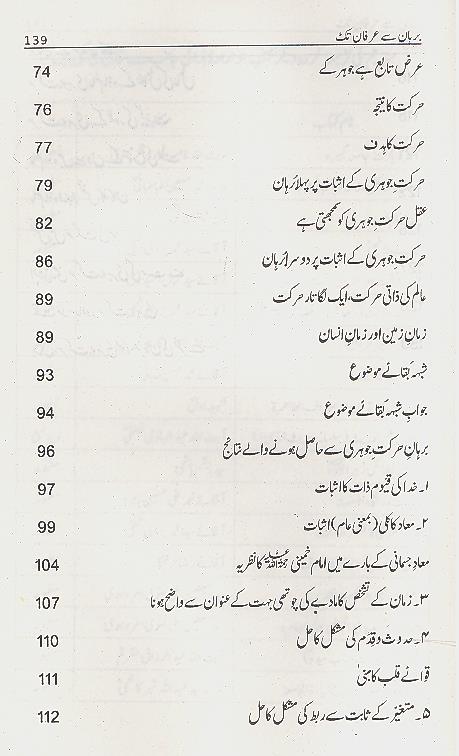 برہان سے عرفان تک 139
عرض تابع ہے جوہر کے 74
حرکت کا نتیجہ 76
حرکت کا ہدف 77
حرکتِ جوہری کے اثبات پر پہلا برہان 79
عقل حرکتِ جوہری کو سمجھتی ہے 82
حرکتِ جوہری کے اثبات پر دوسرا برہان 86
عالم کی ذاتی حرکت، ایک لگاتار حرکت 89
زمانِ زمین اور زمانِ انسان 89
شبہہ بقائے موضوع 93
جوابِ شبہہ بقائے موضوع 94
برہانِ حرکتِ جوہری سے حاصل ہونے والے نتائج 96
۱۔ خدا کی قیوم ذات کا اثبات 97
۲۔ معاد کا کلی (بمعنی عام) اثبات 99
معادِ جسمانی کے بارے میں امام خمینی رحمۃ اللہ علیہ کا نظریہ 104
۳۔ زمان کے تشخص کا مادے کی چوتھی جہت کے عنوان سے واضح ہونا 107
۴۔ حدوث و قِدَم کی مشکل کا حل 110
قوائے قلب کا مبنیٰ 111
۵۔ متغیّر کے ثابت سے ربط کی مشکل کا حل 112